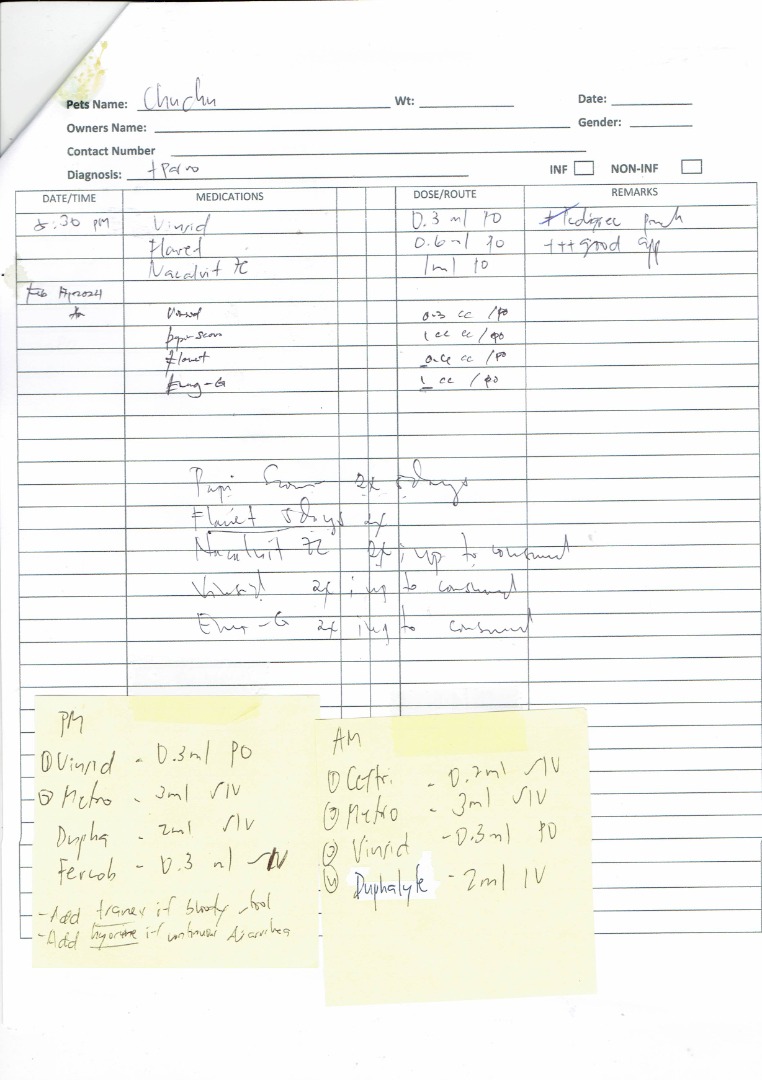 Pets Name: Chuchu Wt: Date:
Owners Name: Gender:
Contact Number
Diagnosis: + Parvo INF NON-INF
DATE/TIME MEDICATIONS DOSE/ROUTE REMARKS
5:30 PM Vinsid 0.3 ml PO + Pedigree
Flavet 0.6 ml PO +++ good app
Nacalvit TC 1 ml PO
Feb
Vinsid 0.3 cc / PO
papi-scour 1 cc / PO
Flavet cc / PO
Emg-G 1 cc / PO
Papi Scour 2x 5 days
Flavet 5 days 2x
Nacalvit TC 2x ; up to consumed
Vinsid 2x ; up to consumed
Emg-G 2x ; up to consumed
PM
① Vinsid - 0.3 ml PO
② Metro - 3ml SIV
Dupha - 2ml SIV
Fercob - 0.3 ml SIV
- Add tranex if bloody stool
- Add if diarrhea
AM
① Ceftri - SIV
② Metro - 3ml SIV
③ Vinsid - 0.3ml PO
④ Duphalyte - 2ml IV